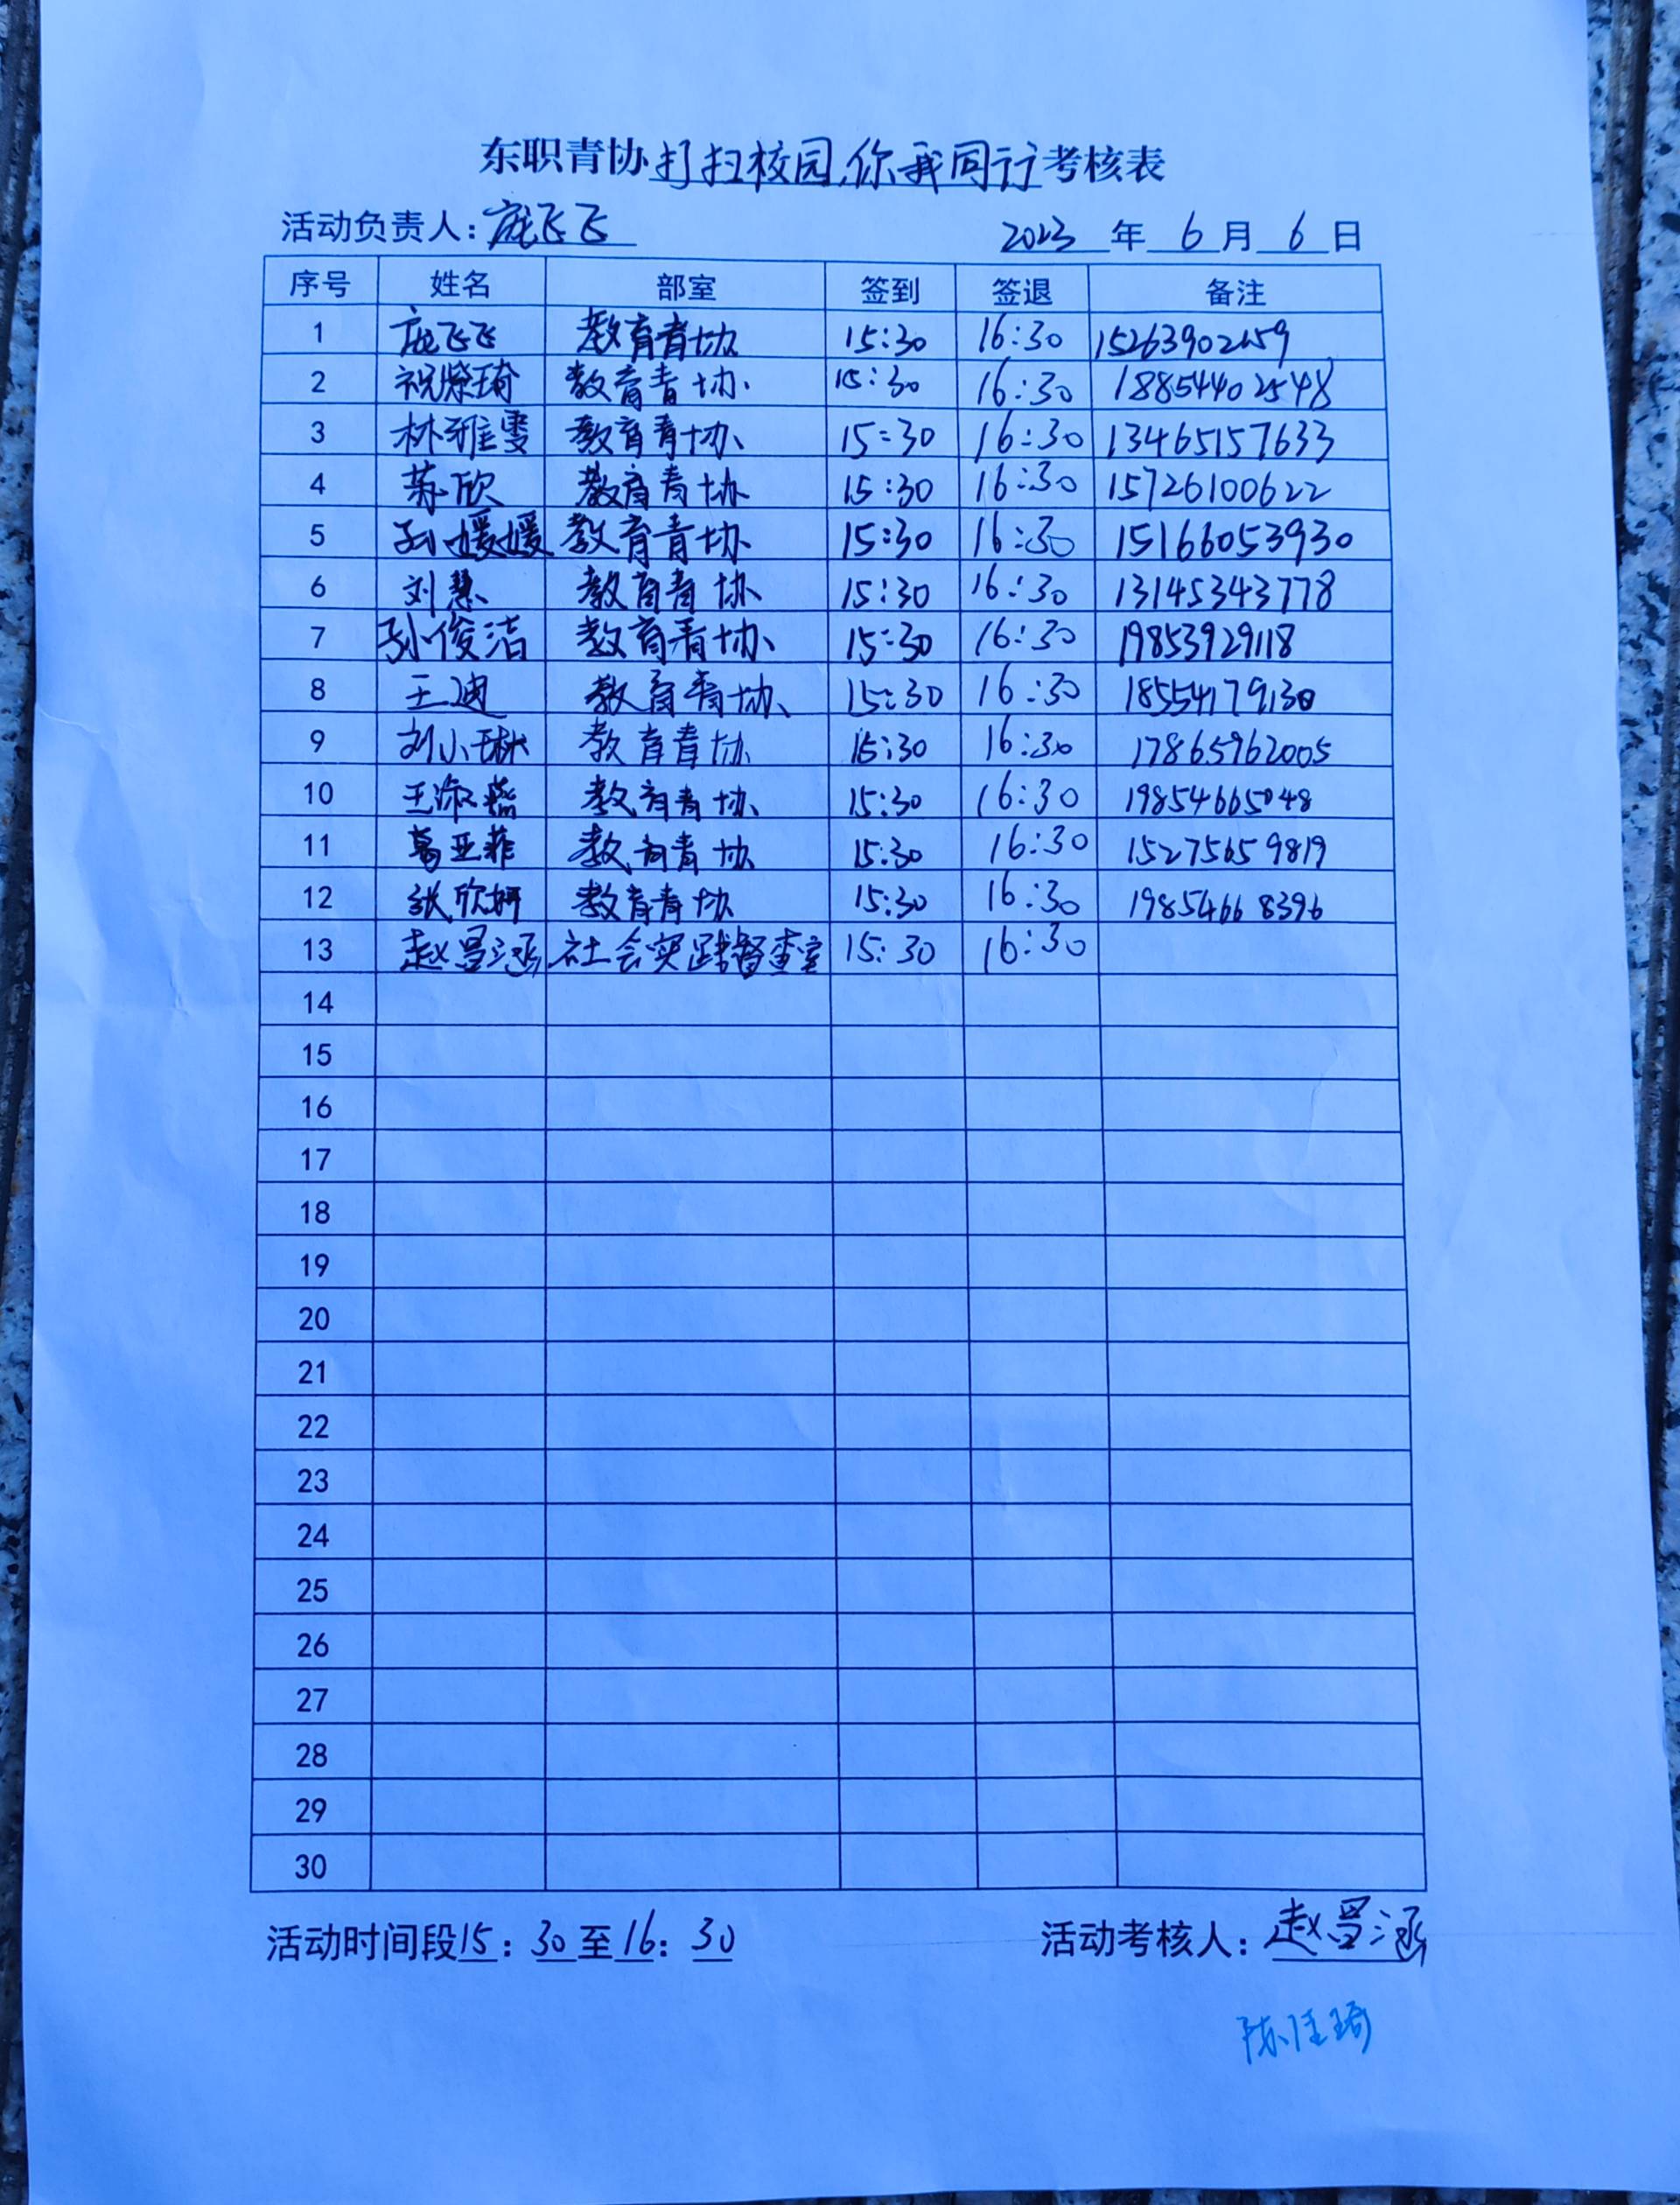 东职青协打扫校园,你我同行考核表
活动负责人:庞飞飞 2023年6月6日
序号 姓名 部室 签到 签退 备注
1 庞飞飞 教育青协 15:30 16:30 15263902459
2 祝燊琦 教育青协 15:30 16:30 18854402548
3 林雅雯 教育青协 15:30 16:30 13465157633
4 苏欣 教育青协 15:30 16:30 15726100622
5 孙媛媛 教育青协 15:30 16:30 15166053930
6 刘慧 教育青协 15:30 16:30 13145343778
7 孙俊洁 教育青协 15:30 16:30 19853929118
8 王迪 教育青协 15:30 16:30 18554179130
9 刘小琳 教育青协 15:30 16:30 17865962005
10 王淑燕 教育青协 15:30 16:30 19854665048
11 葛亚菲 教育青协 15:30 16:30 15275659819
12 张欣妍 教育青协 15:30 16:30 19854668396
13 赵昱涵 社会实践督查室 15:30 16:30
14
15
16
17
18
19
20
21
22
23
24
25
26
27
28
29
30
活动时间段15:30至16:30 活动考核人:赵昱涵
陈佳琦